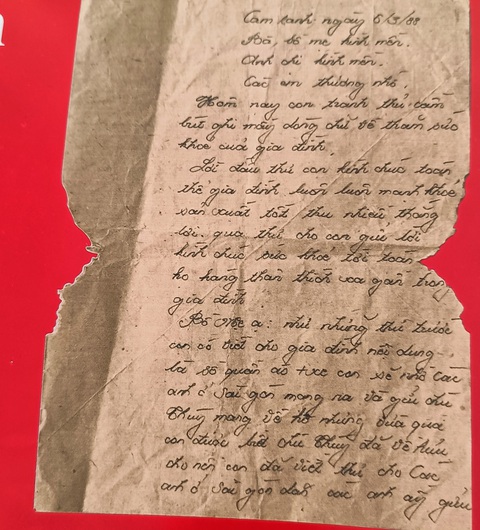 Cam ranh ngày 6/3/88
Bố, bố mẹ kính mến.
Anh chị kính mến.
Các em thương nhớ.
Hôm nay con tranh thủ cầm
bút ghi mấy dòng chữ về thăm sức
khoẻ của gia đình.
Lời đầu thư con kính chúc toàn
thể gia đình luôn luôn mạnh khoẻ
sản xuất tốt, thu nhiều thắng
lợi. qua thư cho con gửi lời
kính chúc sức khoẻ tới toàn
họ hàng thân thích xa gần trong
gia đình.
Bố mẹ ạ: như những thư trước
con có viết cho gia đình nội dung
là số quần áo con sẽ nhờ các
anh ở Sài gòn mang ra và gửi chú
Thuỷ mang về hộ nhưng vừa qua
con được biết chú Thuỷ đã về hưu
cho nên con đã viết thư cho các
anh ở Sài gòn các anh ấy gửi